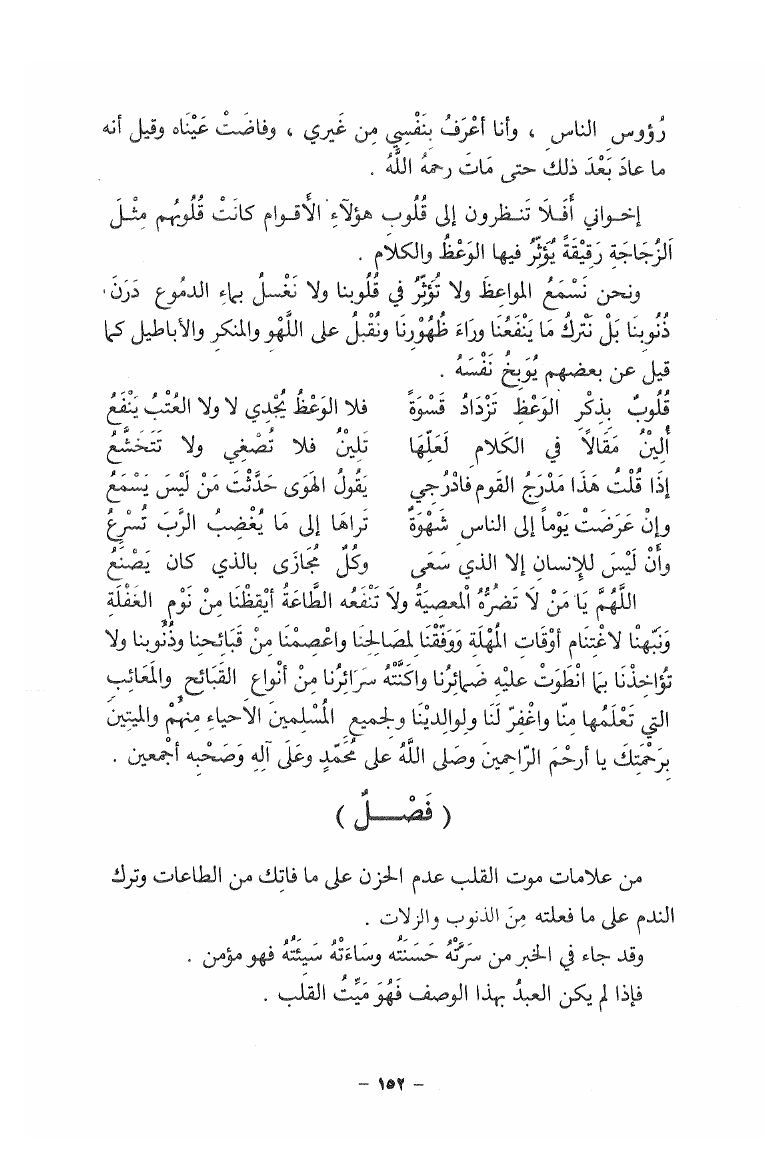 رُؤوسِ الناسِ ، وأنا أعْرَفُ بِنَفْسِي مِن غَيري ، وفاضَتْ عَيْنَاه وقيل أنه
ما عادَ بَعْدَ ذلك حتى مَاتَ رحمهُ اللَّهُ .
إخواني أَفَلَا تَنظرون إلى قُلُوبِ هؤلآءِ الأَقوام كانَتْ قُلُوبُهم مِثْلَ
اَلزُجَاجَةِ رَقِيْقَةً يُؤَثِّرُ فيها الوَعْظُ والكلام .
ونحن نَسْمَعُ المواعِظَ ولا تُؤَثِّرُ في قُلُوبنا ولا نَغْسلُ بماءِ الدمُوع دَرَنَ
ذُنُوبنَا بَلْ نَتْركُ مَا يَنْفَعُنَا وراءَ ظُهُوْرِنَا ونُقْبلُ على اللَّهْو والمنكر والأباطيل كما
قيل عن بعضهم يُوَبخُ نَفْسَهُ .
قُلُوبٌ بِذكْرِ الوَعْظِ تَزْدَادُ قَسْوَةً فلا الوَعْظُ يُجْدِي لا ولا العُتْبُ يَنْفَعُ
أُلِينْ مَقَالاً في الكَلام لَعَلَّهَا تَلِيْنُ فلا تُصْغِي ولا تَتَخَشَّعُ
إذَا قُلْتُ هَذَا مَدْرَجُ القَوم فادْرُجي يَقُولُ الهَوَى حَدَّثْتَ مَنْ لَيْسَ يَسْمَعُ
وإنْ عَرَضَتْ يَوْماً إلى الناسِ شَهْوَةٌ تَراهَا إلى مَا يُغْضِبُ الرَّبَ تُسْرِعُ
وأَنْ لَيْسَ للإنسانِ إلا الذي سَعَى وكُلٌ مُجَازَى بالذي كان يَصْنَعُ
اللَّهُمَّ يَا مَنْ لَا تَضُرُّهُ الْمعصِيَةُ ولاَ تَنْفَعُه الطَّاعَةُ أيْقِظْنَا مِنْ نَوْمِ الغَفْلَةِ
وَنَبّهْنَا لاغْتِنَام أوْقَاتِ المُهْلَة وَوَفّقْنَا لمصَالحِنَا واعْصِمْنَا مِنْ قَبَائحنا وذُنُوبنا ولا
تؤاخِذْنَا بمَا انْطَوَتْ عليْه ضَمائِرُنا واكَنَّتْهُ سَرَائِرُنا مِنْ أنْواعِ القَبَائحِ والمَعَائبِ
التي تَعْلَمُها مِنّا واغْفِرْ لَنَا ولِوالِديْنَا ولجميعِ المُسْلِمينَ الأحياءِ مِنهُمْ والميّتِينَ
بِرَحْمَتِكَ يا أرحْمَ الرّاحِمينَ وصَلى اللَّهُ على مُحَمّدٍ وعَلَى آلِهِ وَصَحْبِه أجْمعين .
( فَصْــــلٌ )
من علامات موت القلب عدم الحزن على ما فاتِك من الطاعات وترك
الندم على ما فعلته مِنَ الذنوب والزلات .
وقد جاء في الخبر من سَرَّتْهُ حَسَنَتُه وسَاءَتْهُ سَيئَتُهُ فهو مؤمن .
فإذا لم يكن العبدُ بهذا الوصف فَهُوَ مَيِّتُ القلب .
– ١٥٢ –